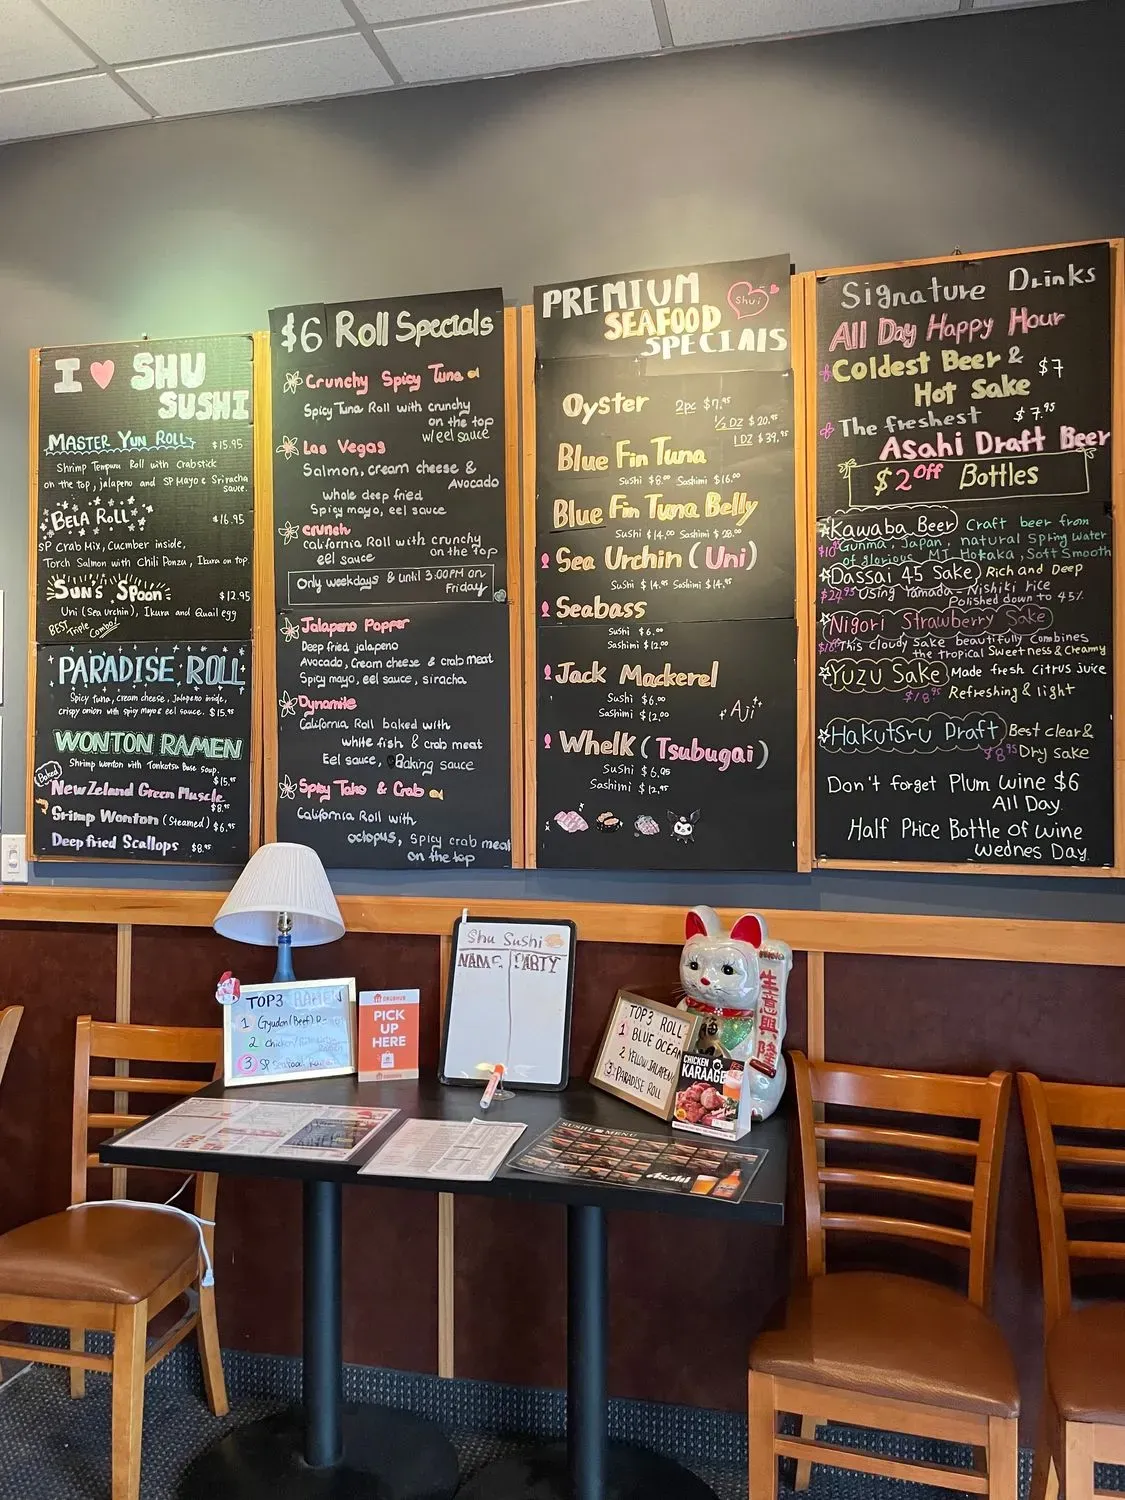 I ♥ SHU
SUSHI
MASTER YUN ROLL $15.95
Shrimp Tempura Roll with Crabstick
on the top, jalapeno and SP Mayo & Sriracha
sauce.
BELA ROLL $16.95
SP Crab Mix, Cucmber inside,
Torch Salmon with Chili Ponzu, Ikura on top.
SUN'S SPOON $12.95
Uni (Sea urchin), Ikura and Quail egg
BEST Triple Combo!
PARADISE ROLL
Spicy tuna, cream cheese, Jalapeno inside,
crispy onion with spicy mayo & eel sauce. $15.95
WONTON RAMEN
Shrimp wonton with Tonkotsu Base soup.
$15.95
Baked
New Zeland Green Muscle
$8.95
Srimp Wonton (Steamed) $6.95
Deep fried Scallops $8.95
$6 Roll Specials
Crunchy Spicy Tuna
Spicy Tuna Roll with crunchy
on the top
w/eel sauce
Las Vegas
Salmon, cream cheese &
Avocado
whole deep fried
Spicy mayo, eel sauce
crunch
California Roll with crunchy
on the top
eel sauce
Only weekdays & until 3:00PM on
Friday
Jalapeno Popper
Deep fried jalapeno
Avocado, Cream cheese & crab meat
Spicy mayo, eel sauce, siracha
Dynamite
California Roll baked with
white fish & crab meat
Eel sauce, Baking sauce
Spicy Tako & Crab
California Roll with
octopus, Spicy crab meat
on the top
PREMIUM
SEAFOOD
SPECIALS
Shu!
Oyster 2pc $7.95
1/2 DZ $20.95
1 DZ $39.95
Blue Fin Tuna
Sushi $8.00 Sashimi $16.00
Blue Fin Tuna Belly
Sushi $14.00 Sashimi $28.00
Sea Urchin (Uni)
Sushi $14.95 Sashimi $14.95
Seabass
Sushi $6.00
Sashimi $12.00
Jack Mackerel
Sushi $6.00
Sashimi $12.00
Aji
Whelk (Tsubugai)
Sushi $6.95
Sashimi $12.95
Signature Drinks
All Day Happy Hour
Coldest Beer &
Hot Sake $7
The freshest $7.95
Asahi Draft Beer
$2 off Bottles
Kawaba Beer Craft beer from
$10 Gunma, Japan, natural Spring water
of glorious MT Hotaka, Soft Smooth
Dassai 45 Sake Rich and Deep
$24.95 Using Yamada-Nishiki rice
Polished down to 45%
Nigori Strawberry Sake
This cloudy Sake beautifully combines
the tropical Sweetness & Creamy
Yuzu Sake Made fresh citrus juice
$18.95 Refreshing & light
Hakutsru Draft Best clear &
$8.95 Dry sake
Don't forget Plum wine $6
All Day.
Half Price Bottle of wine
Wednes Day.
Shu Sushi
NAME PARTY
TOP3 RAMEN
1 Gyudon (Beef)
2 Chicken
3 SP Seafood Ramen
GRUBHUB
PICK
UP
HERE
TOP3 ROLL
1 BLUE OCEAN
2 YELLOW JALAPENO
3 PARADISE ROLL
生意興隆
CHICKEN
KARAAGE
SUSHI MENU
Asahi